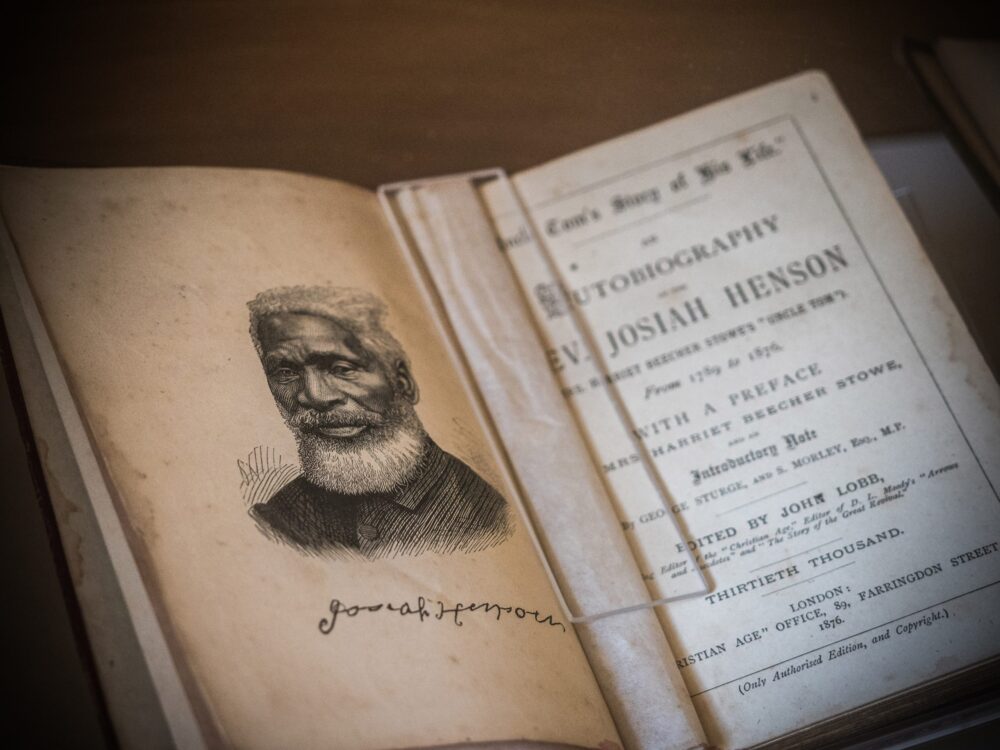 Josiah Henson
Tom's Story of His Life."
AN
AUTOBIOGRAPHY
OF THE
EV. JOSIAH HENSON
BEECHER STOWE'S "UNCLE TOM").
From 1789 to 1876.
WITH A PREFACE
MRS HARRIET BEECHER STOWE,
AND AN
Introductory Note
By GEORGE STURGE, AND S. MORLEY, ESQ., M.P.
EDITED BY JOHN LOBB,
Editor of the "Christian Age," Editor of D. L. Moody's "Arrows
and Anecdotes" and "The Story of the Great Revival."
THIRTIETH THOUSAND.
LONDON:
RISTIAN AGE" OFFICE, 89, FARRINGDON STREET
1876.
(Only Authorised Edition, and Copyright.)